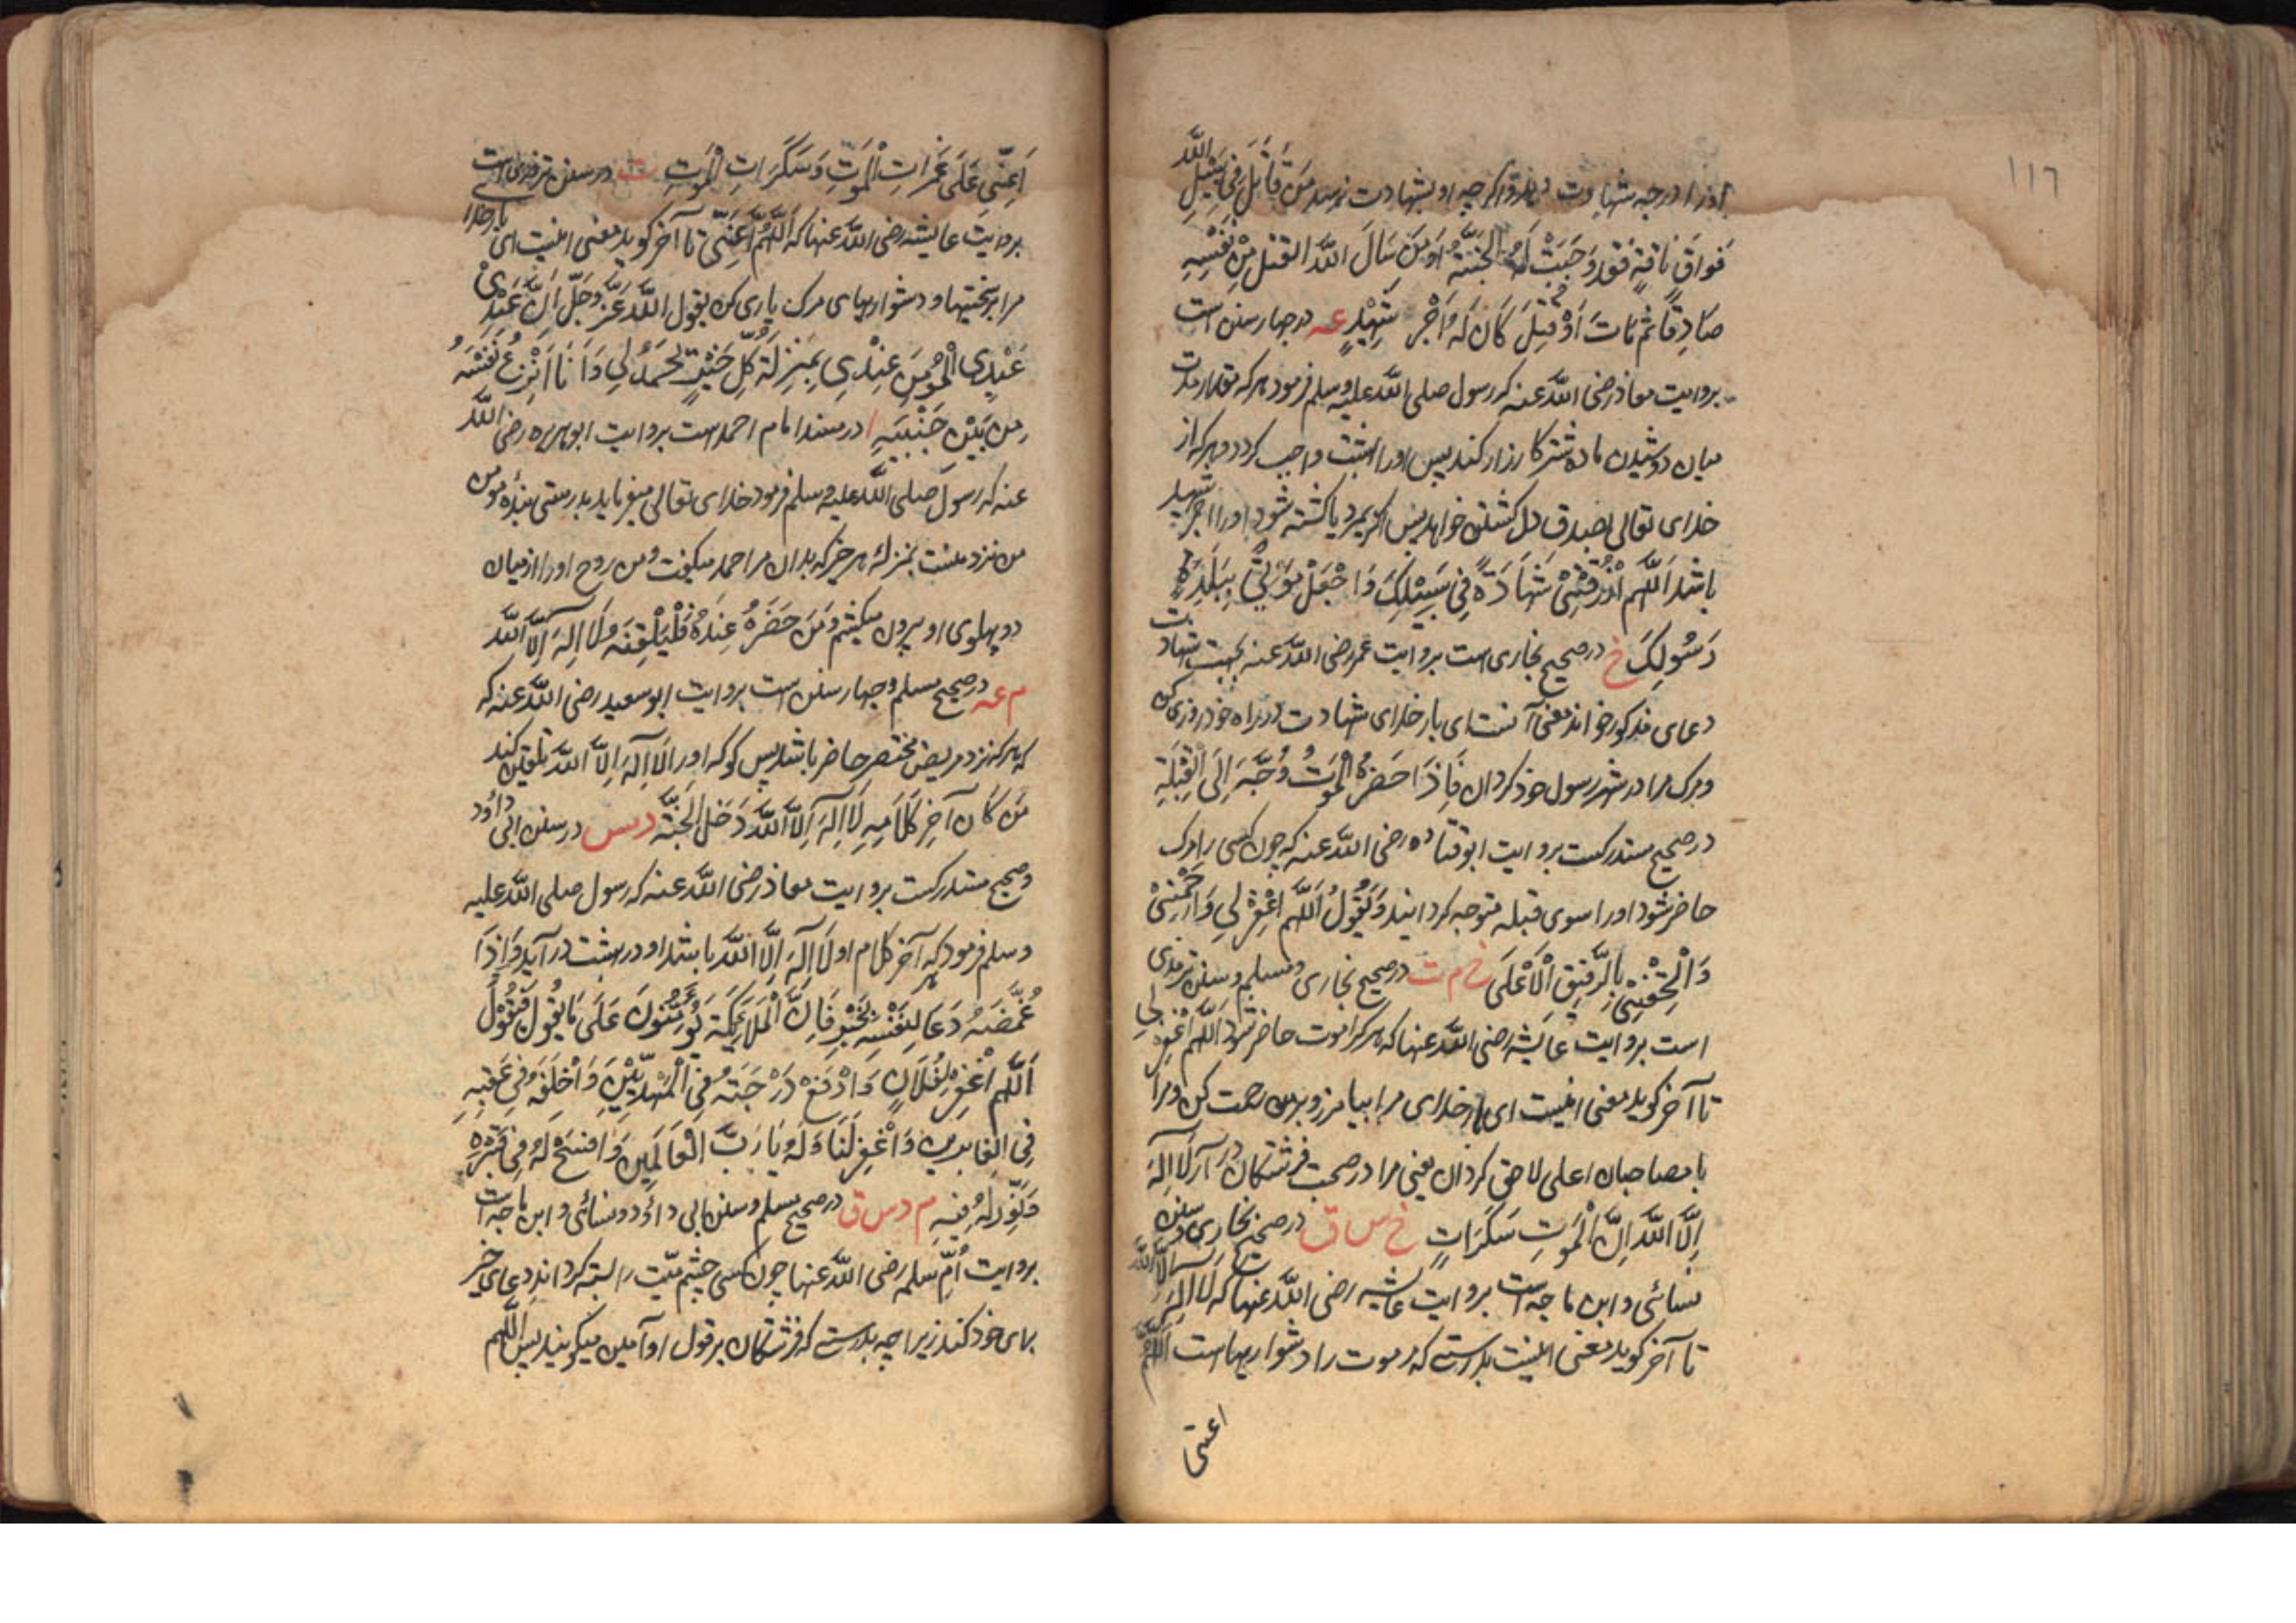 ١١٦
او را درجه شهادت دهد واگرچه او بشهادت نرسد مَنْ قَاتَلَ فِي سَبِيْلِ اللّٰه
فَوَاقَ نَاقَةٍ فَقَد وَجَبَتْ لَهُ الْجَنَّةُ وَمَنْ سَالَ اللّٰه القتل مِنْ نَفْسِهِ
صَادِقًا ثُمَّ مَاتَ اَوْ قُتِلَ كَانَ لَهُ اَجْرُ شَهِيْدٍ عه در چهار سنن است
بروایت معاذ رضی اللّٰه عنه که رسول صلی اللّٰه علیه وسلم فرمود هر که مقدار مدت
میان دوشیدن ماده شتر کارزار کند پس او را بهشت واجب کردد و هر که از
خدای تعالی بصدق دل کشتن خواهد پس اگر بمیرد یا کشته شود او را اجر شهید
باشد اَللّٰهُمَّ ارْزُقْنِيْ شَهَادَةً فِي سَبِيْلِكَ وَاجْعَلْ مَوْتِيْ بِبَلَدِ
رَسُولِكَ خ در صحیح بخاری است بروایت عمر رضی اللّٰه عنه بجهت شهادت
دعای مذکور خواند معنی آنست ای بار خدای شهادت در راه خود روزی کن
و مرک مرا در شهر رسول خود کردان فَاِذَا حَضَرَهُ الْمَوْتُ وُجِّهَ اِلَى الْقِبْلَةِ
در صحیح مستدرکست بروایت ابو قتاده رضی اللّٰه عنه که چون کسی را مرک
حاضر شود او را سوی قبله متوجه کردانند وَيَقُولُ اَللّٰهُمَّ اغْفِرْ لِي وَارْحَمْنِيْ
وَالْحِقْنِيْ بِالرَّفِيْقِ الْاَعْلَى خ م ت در صحیح بخاری و مسلم و سنن ترمذی
است بروایت عایشه رضی اللّٰه عنها که هر کرا موت حاضر شود اَللّٰهُمَّ اغْفِرْ لِي
تا آخر کوید معنی اینست ای بار خدای مرا بیامرز و بر من رحمت کن و مرا
با مصاحبان اعلی لاحق کردان یعنی مرا در صحبت فرشتکان در آر لَا اِلٰهَ
اِلَّا اللّٰه اِنَّ لِلْمَوتِ سَكَرَاتٍ خ س ق در صحیح بخاری و سنن
نسائی و ابن ماجه است بروایت عایشه رضی اللّٰه عنها که لَا اِلٰهَ اِلَّا اللّٰه
تا آخر کوید معنی اینست بدرستی که مر موت را دشواریهاست اَللّٰهُمَّ
اعنی
اَعِنِّي عَلَى غَمَرَاتِ الْمَوْتِ وَسَكَرَاتِ الْمَوتِ ت در سنن ترمذی است
بروایت عایشه رضی اللّٰه عنها که اَللّٰهُمَّ اَعِنِّي تا آخر کوید معنی اینست ای بار خدای
مرا بر سختیها و دشواریهای مرک یاری کن یقول اللّٰه عَزَّ وَجَلَّ اِنَّ عَبْدِيْ
عَبْدِي الْمُؤْمِنَ عِنْدِي بِمَنْزِلَةِ كُلِّ خَيْرٍ يَحْمَدُنِي وَاَنَا اَنْزِعُ نَفْسَهُ
مِنْ بَيْنِ جَنْبَيْهِ ا در مسند امام احمد است بروایت ابو هریره رضی اللّٰه
عنه که رسول صلی اللّٰه علیه وسلم فرمود خدای تعالی میفرماید بدرستی بنده مومن
من نزد منست بمنزله هر خیر که بدان مرا حمد میکفت و من روح او را از میان
دو پهلوی او بیرون میکشم وَمَنْ حَضَرَهُ عِنْدَهُ فَلْيُلَقِّنْهُ لَا اِلٰهَ اِلَّا اللّٰه
م عه در صحیح مسلم و چهار سنن است بروایت ابو سعید رضی اللّٰه عنه که
که هر که نزد مریض محتضر حاضر باشد پس کو که او را لَا اِلٰهَ اِلَّا اللّٰه تلقین کند
مَنْ كَانَ آخِرُ كَلَامِهِ لَا اِلٰهَ اِلَّا اللّٰه دَخَلَ الْجَنَّةَ د مس در سنن ابی داؤد
و صحیح مستدرکست بروایت معاذ رضی اللّٰه عنه که رسول صلی اللّٰه علیه
وسلم فرمود که هر که آخر کلام او لَا اِلٰهَ اِلَّا اللّٰه باشد او در بهشت در آید وَاِذَا
غَمَّضَهُ دَعَا لِنَفْسِهِ بِخَيْرٍ فَاِنَّ الْمَلَائِكَةَ يُؤَمِّنُونَ عَلَى مَا يَقُولُ فَيَقُولُ
اَللّٰهُمَّ اغْفِرْ لِفُلَانٍ وَارْفَعْ دَرَجَتَهُ فِي الْمَهْدِيِّيْنَ وَاخْلُفْهُ فِي عَقِبِهِ
فِي الْغَابِرِيْنَ وَاغْفِرْ لَنَا وَلَهُ يَا رَبَّ الْعَالَمِيْنَ وَافْسَحْ لَهُ فِي قَبْرِهِ
وَنَوِّرْ لَهُ فِيْهِ م د س ق در صحیح مسلم و سنن ابی داؤد و نسائی و ابن ماجه است
بروایت اُمّ سلمه رضی اللّٰه عنها چون کسی چشم میّت را بسته کرداند دعای خیر
برای خود کند زیرا چه بدرستی که فرشتکان بر قول او آمین میکویند پس اللّٰهم